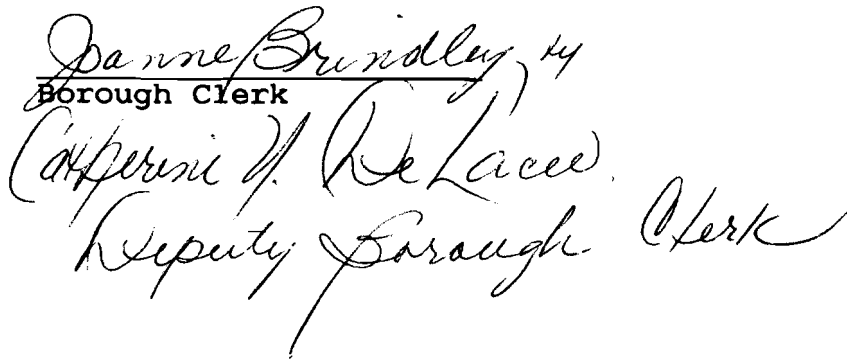 Joanne Brindley, by
Borough Clerk
Catherine Y. DeLacee
Deputy Borough Clerk